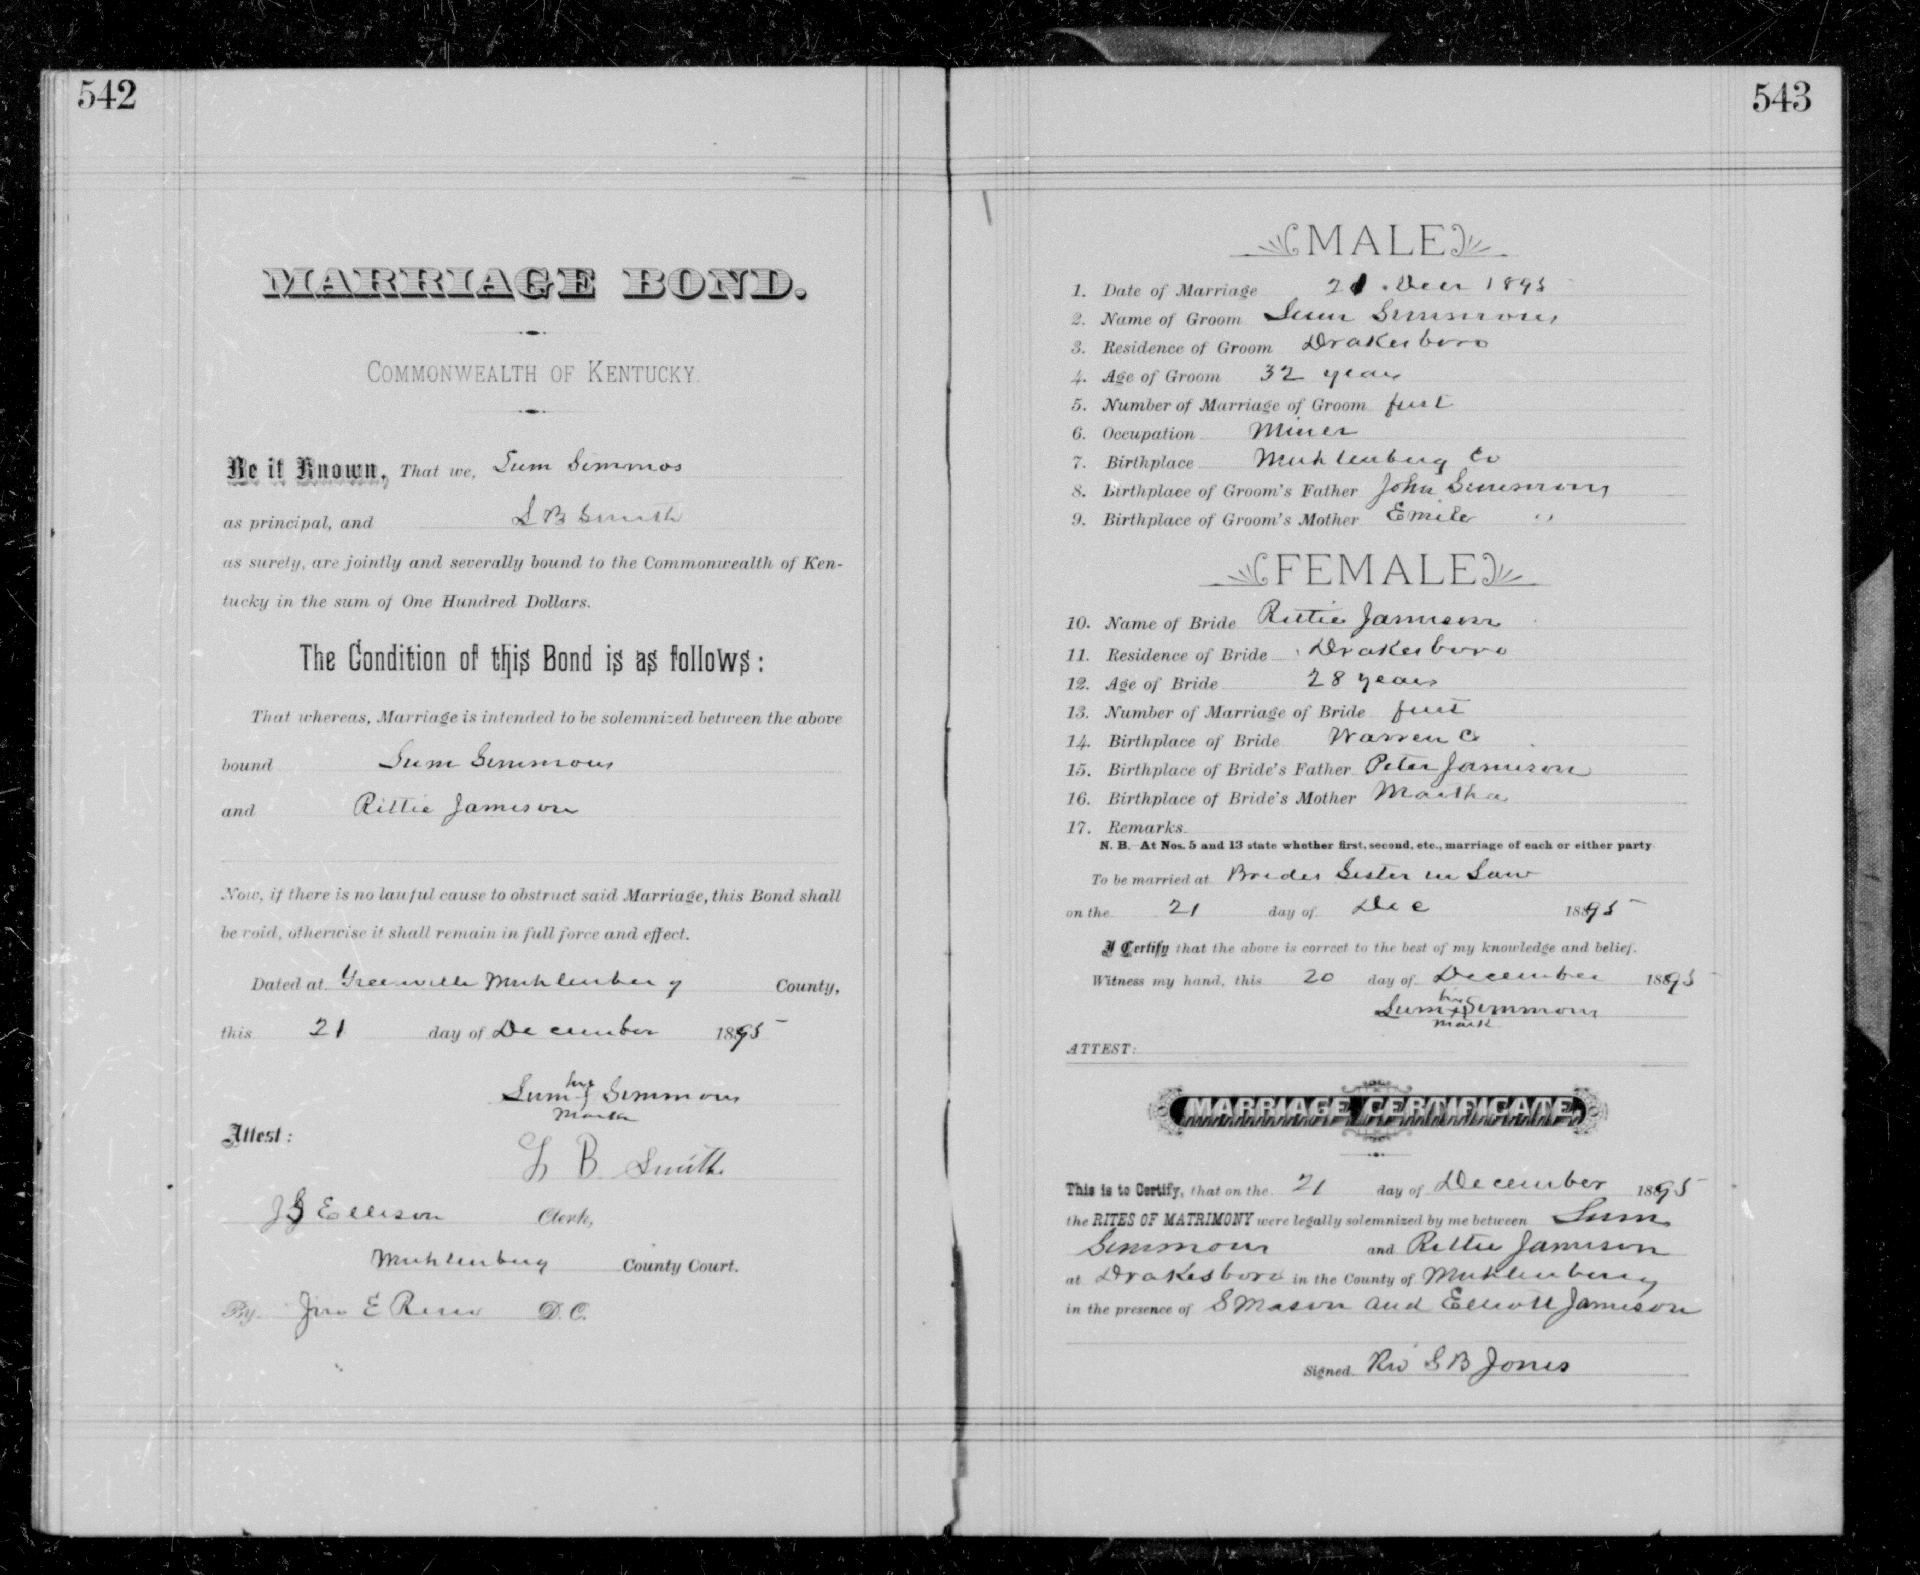 542
MARRIAGE BOND.
COMMONWEALTH OF KENTUCKY.
Be it Known, That we, Sum Simmos
as principal, and S B Smith
as surety, are jointly and severally bound to the Commonwealth of Ken-
tucky in the sum of One Hundred Dollars.
The Condition of this Bond is as follows:
That whereas, Marriage is intended to be solemnized between the above
bound Sum Simmons
and Rittie Jamison
Now, if there is no lawful cause to obstruct said Marriage, this Bond shall
be void, otherwise it shall remain in full force and effect.
Dated at Greenville Muhlenberg County,
this 21 day of December 1895
his
Sum Simmons
mark
Attest:
L B Smith
Ellison Clerk,
Muhlenberg County Court.
By Jno E Reno D. C.
543
MALE
1. Date of Marriage 21 Decr 1895
2. Name of Groom Sum Simmons
3. Residence of Groom Drakesboro
4. Age of Groom 32 years
5. Number of Marriage of Groom first
6. Occupation Miner
7. Birthplace Muhlenberg Co
8. Birthplace of Groom's Father John Simmons
9. Birthplace of Groom's Mother Emile "
FEMALE
10. Name of Bride Rittie Jamison
11. Residence of Bride Drakesboro
12. Age of Bride 28 years
13. Number of Marriage of Bride first
14. Birthplace of Bride Warren C
15. Birthplace of Bride's Father Peter Jamison
16. Birthplace of Bride's Mother Martha
17. Remarks
N. B. At Nos. 5 and 13 state whether first, second, etc., marriage of each or either party
To be married at Brides Sister in Law
on the 21 day of Dec 1895
I Certify that the above is correct to the best of my knowledge and belief.
Witness my hand, this 20 day of December 1895
his
Sum x Simmons
mark
ATTEST:
MARRIAGE CERTIFICATE.
This is to Certify, that on the 21 day of December 1895
the RITES OF MATRIMONY were legally solemnized by me between Sum
Simmons and Rittie Jamison
at Drakesboro in the County of Muhlenberg
in the presence of S Mason and Elliott Jamison
Signed Rev S B Jones